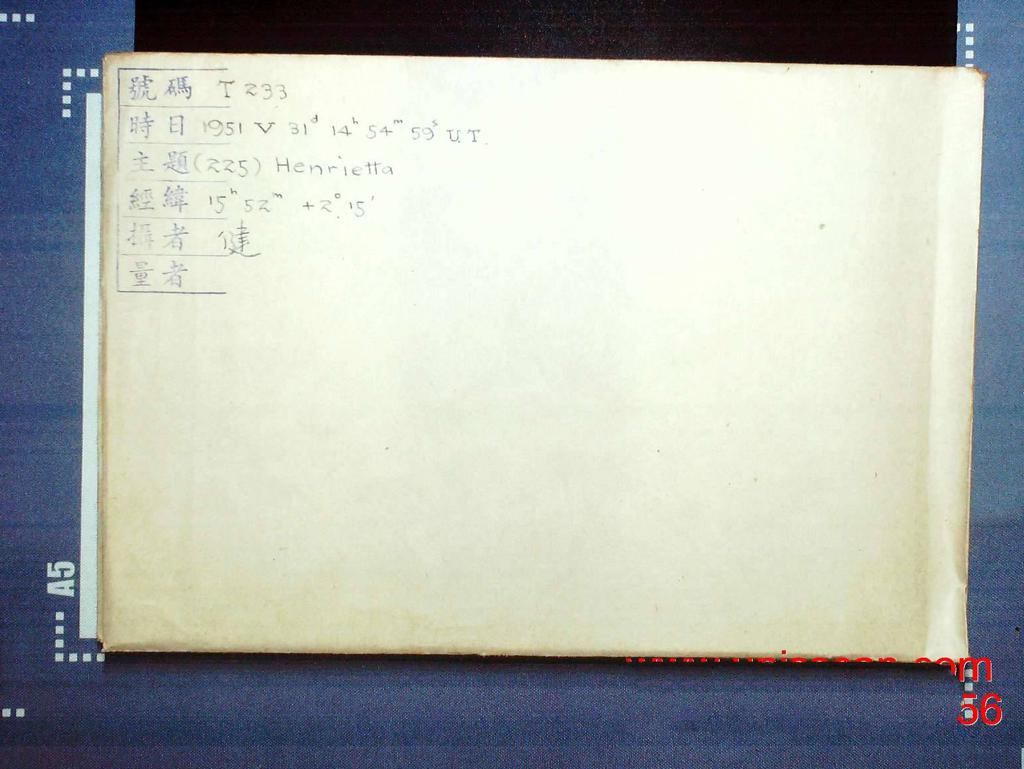 號碼 T 233
時日 1951 V 31ᵈ 14ʰ 54ᵐ 59ˢ U.T.
主題 (225) Henrietta
經緯 15ʰ 52ᵐ +2° 15'
攝者 健
量者
A5
56